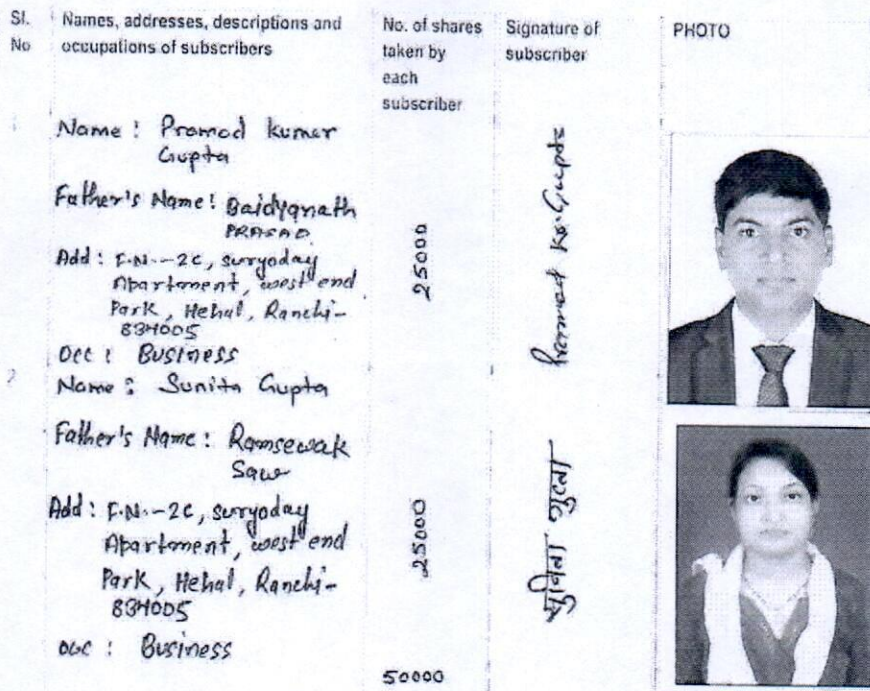 Sl. No
Names, addresses, descriptions and
occupations of subscribers
No. of shares
taken by
each
subscriber
Signature of
subscriber
PHOTO
1
Name : Pramod kumar
Gupta
Father's Name : Baidyanath
PRASAD
Add : F.N.-2C, suryoday
Apartment, west end
Park, Hehal, Ranchi-
834005
Occ : Business
25000
Pramod Kr. Gupta
2
Name : Sunita Gupta
Father's Name : Ramsewak
Saw
Add : F.N.-2C, suryoday
Apartment, west end
Park, Hehal, Ranchi-
834005
Occ : Business
25000
सुनिता गुप्ता
50000